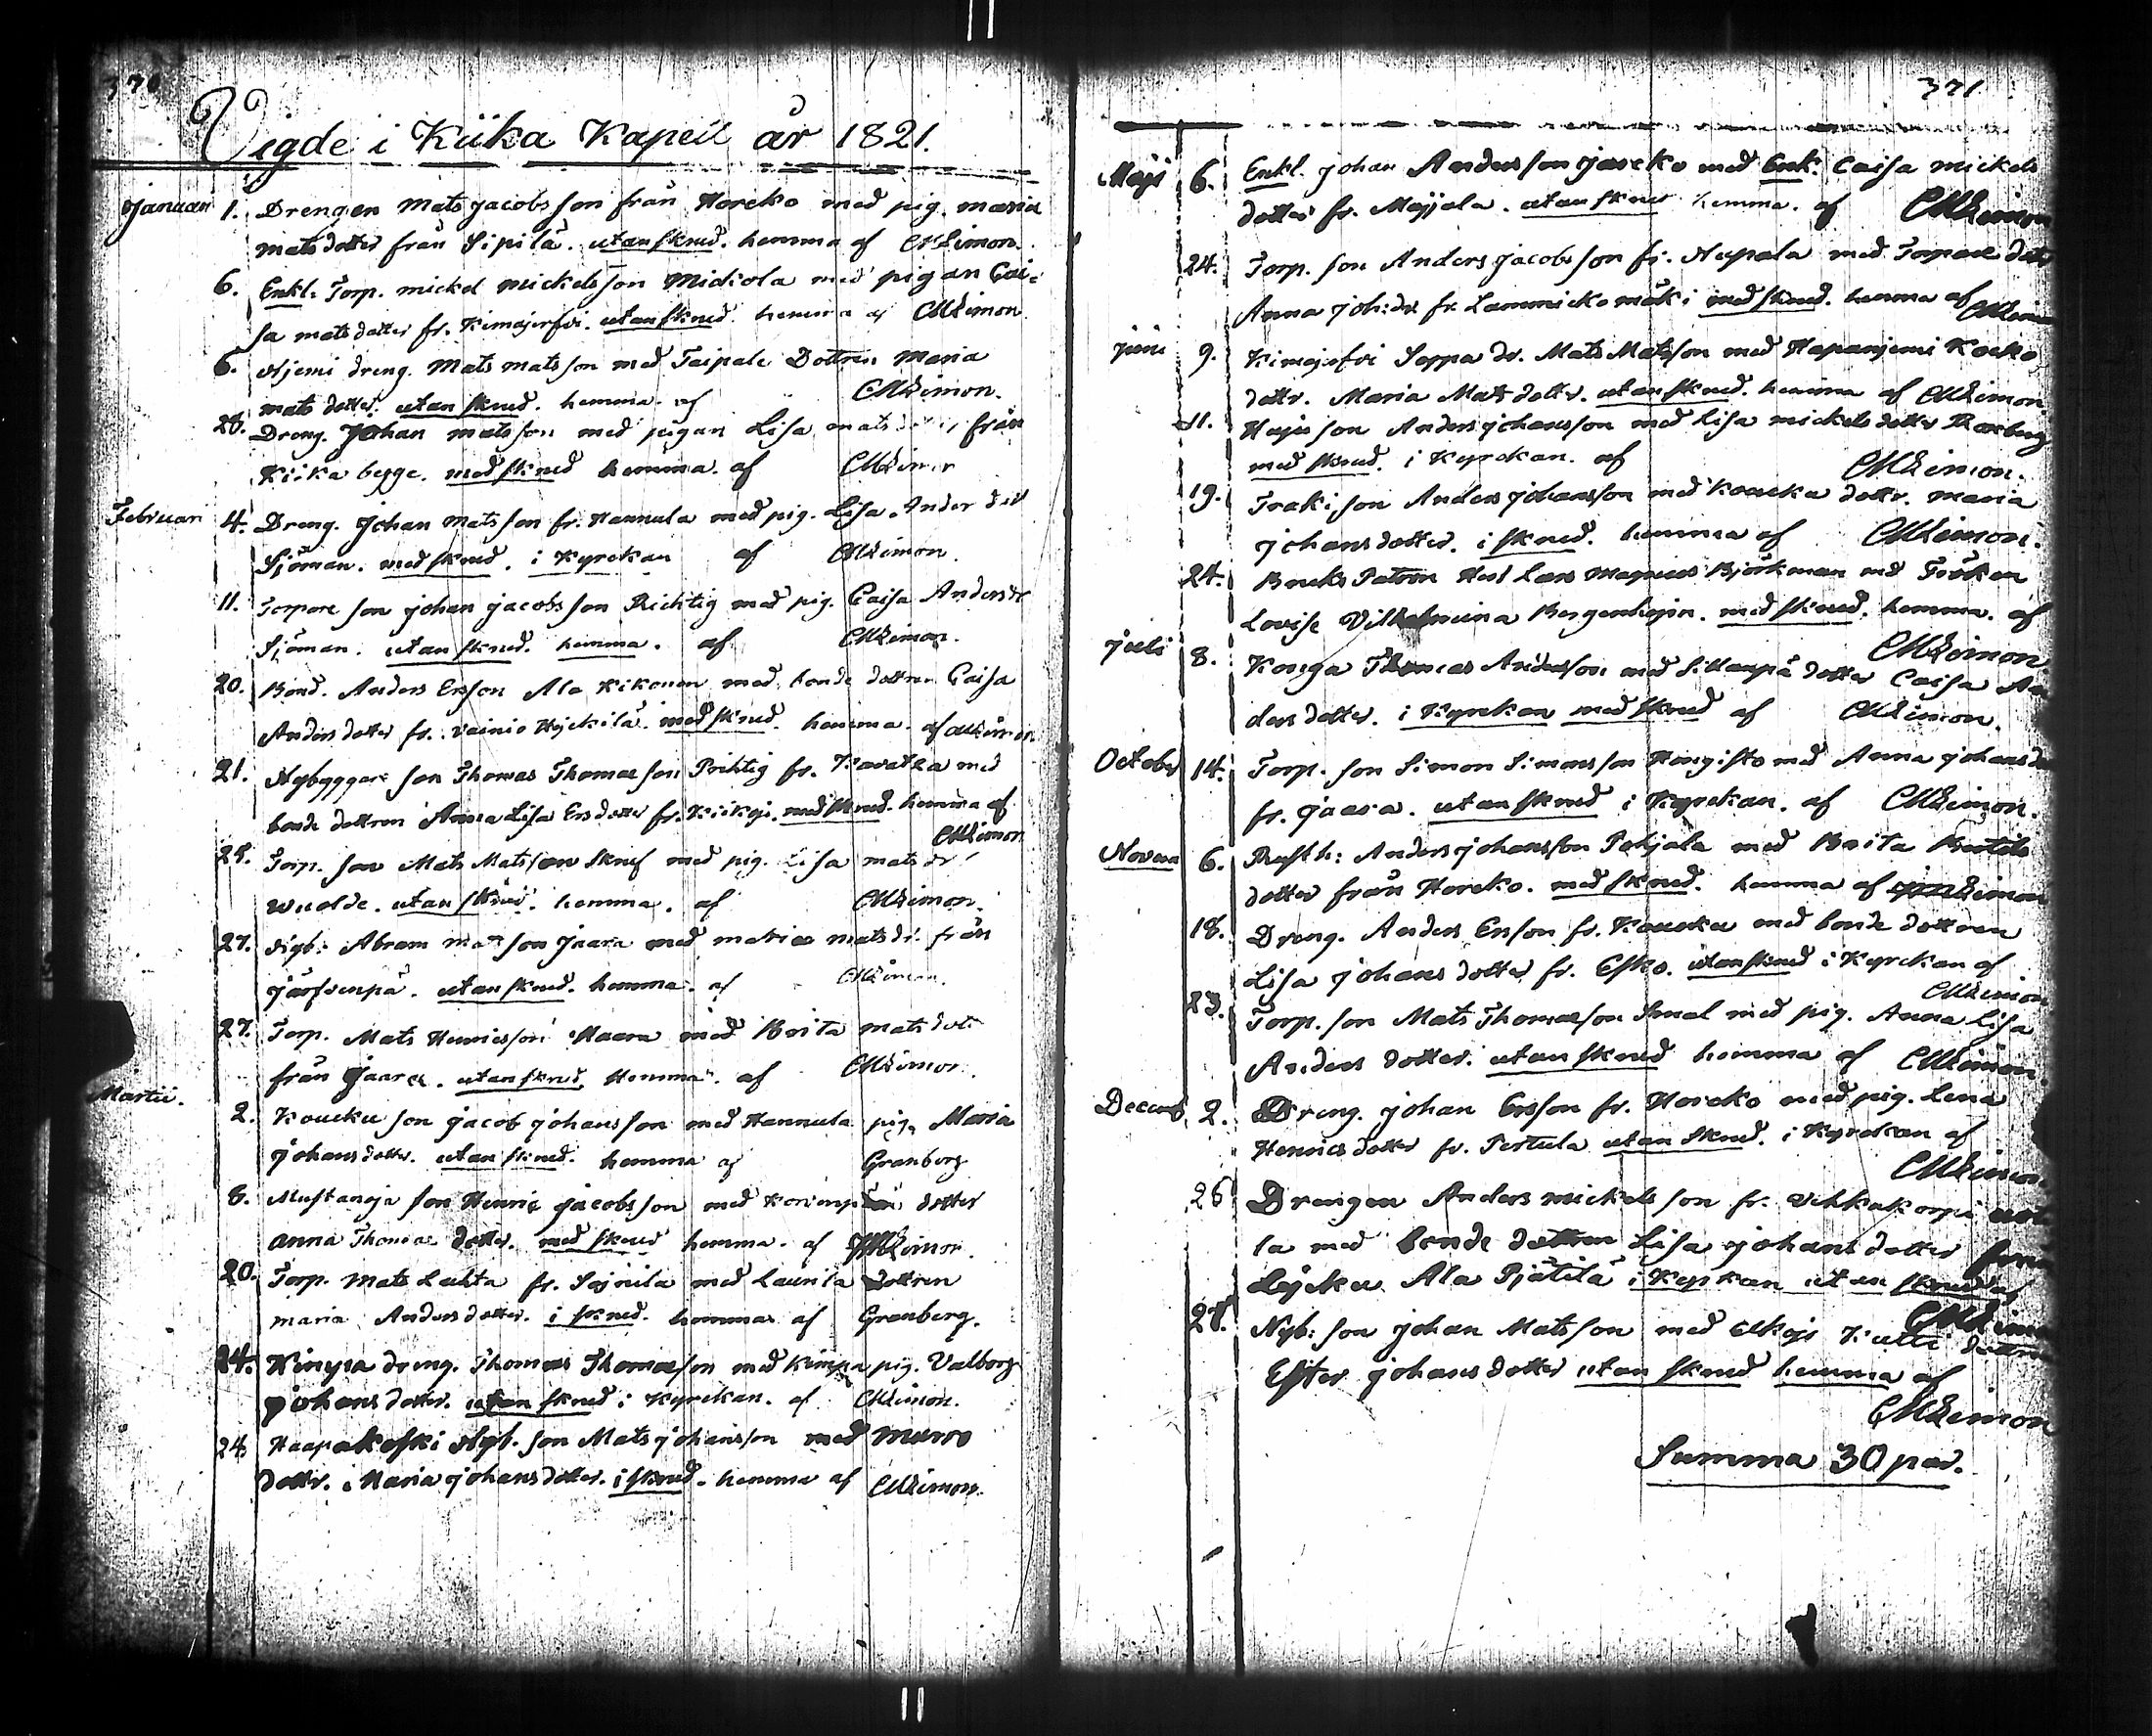 370
Vigde i Kiika Kapell år 1821.
Januari 1. Drengen Mats Jacobsson från Horcko med pig. Maria
Matsdotter från Sipilä. utan skrud. hemma af CMLimon.
6. Enkl. Torp. Mickel Mickelsson Mickola med pigan Cai-
sa Matsdotter fr. Kimajerfvi. utan skrud. hemma af CMLimon.
6. Njemi dreng. Mats Matsson med Taipale Dottren Maria
Matsdotter. utan skrud. hemma af CMLimon.
28. Dreng. Johan Matsson med pigan Lisa Matsdotter från
Kiika begge. med skrud hemma. af CMLimon
Februari 4. Dreng. Johan Matsson fr. Hannula med pig. Lisa Andersdotr
Sjöman. med skrud. i Kyrckan af CMLimon.
11. Torpare son Johan Jacobsson Richtig med pig. Caisa Andersdr
Sjöman. utan skrud. hemma. af CMLimon.
20. Bond. Anders Ersson Ala Kikonen med bonde dottren Caisa
Andersdotter fr. Vainio Hyckilä. med skrud. hemma. af CMLimon
21. Nybyggare son Thomas Thomasson Prihtig fr. Kavatka med
bonde dottren Anna Lisa Ersdotter fr. Kiikoji. med skrud. hemma af
CMLimon
25. Torp. son Mats Matsson Skref med pig. Lisa Matsdr
Wuolde. utan skrud. hemma. af CMLimon.
27. Nyb: Abram Matsson Jaara med Maria Matsdr. från
Järfvenpä. utan skrud. hemma. af CMLimon.
27. Torp. Mats Henricsson Haara med Brita Matsdotr
från Jaara. utan skrud. Hemma. af CMLimon.
Martii. 2. Koucku son Jacob Johansson med Hannula pig. Maria
Johansdotter. utan skrud. hemma af Granborg
8. Mustaoja son Henric Jacobsson med Korvenpää dotter
Anna Thomasdotter. med skrud hemma. af CMLimon.
20. Torp. Mats Lahta fr. Sojnila med Launila Dottren
Maria Andersdotter. i skrud. hemma af Granberg.
24. Kinysa dreng. Thomas Thomasson med Kimpa pig. Valborg
Johansdotter. utan skrud i Kyrckan. af CMLimon.
24 Haapakoski Nyb. son Mats Johansson med Muros
dottr. Maria Johansdotter. i skrud. hemma af CMLimon.
371
Maji 6. Enkl. Johan Andersson Jascko med Enk. Caisa Mickels
dotter fr. Majjala. utan skrud hemma. af CMLimon
24. Torp. son Anders Jacobsson fr. Nupala med Torpare dotr
Anna Joh:dr fr. Lammickomäki med skrud. hemma af CMLimon
Juni 9. Kimajefvi Seppa dr. Mats Matsson med Hapanjemi Kocko
dottr. Maria Matsdottr. utan skrud. hemma af CMLimon
11. Huju son Anders Johansson med Lisa Mickelsdotter Roxberg
med skrud. i Kyrckan. af CMLimon.
19. Traki son Anders Johansson med Koucka dottr. Maria
Johansdotter. i skrud. hemma af CMLimon.
24. Bruks Patron Herr Lars Magnus Björkman med Fröken
Lovise Vilhelmina Bergenhejm. med skrud. hemma. af
CMLimon
Juli 8. Konga Thomas Andersson med Sillanpä dotter Caisa An
dersdotter. i Kyrckan med skrud af CMLimon.
October 14. Torp. son Simon Simonsson Hongisto med Anna Johansdr
fr. Jaara. utan skrud i Kyrckan. af CMLimon.
Novem 6. Rusth: Anders Johansson Pohjala med Brita Bertils
dotter från Horcko. med skrud. hemma af CMLimon
18. Dreng. Anders Ersson fr. Koucku med bonde dottren
Lisa Johansdotter fr. Esko. utan skrud i Kyrckan af
CMLimon
23. Torp. son Mats Thomasson Smal med pig. Anna Lisa
Andersdotter. utan skrud hemma af CMLimon.
Decemb. 2. Dreng. Johan Ersson fr. Horcko med pig. Lena
Henricsdotter fr. Pertula utan skrud. i Kyrckan af
CMLimon
26 Drengen Anders Mickelsson fr. Vehkakorpi
la med bonde dottren Lisa Johansdotter från
Löjcku Ala Pjätilä i Kyrkan utan skrud af
CMLimon
28. Nyb: son Johan Matsson med Elkojs Kutti dottren
Ester Johansdotter utan skrud hemma af
CMLimon
Summa 30 par.